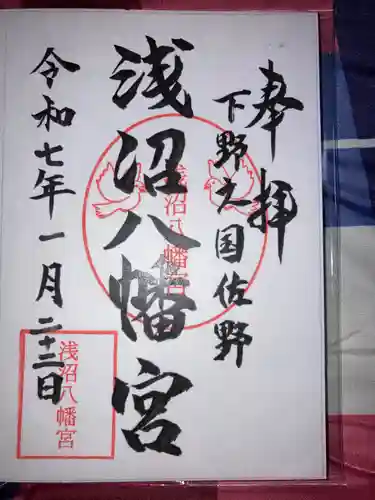 奉拝
下野之国佐野
浅沼八幡宮
浅沼八幡宮
令和七年一月二十三日
浅沼八幡宮